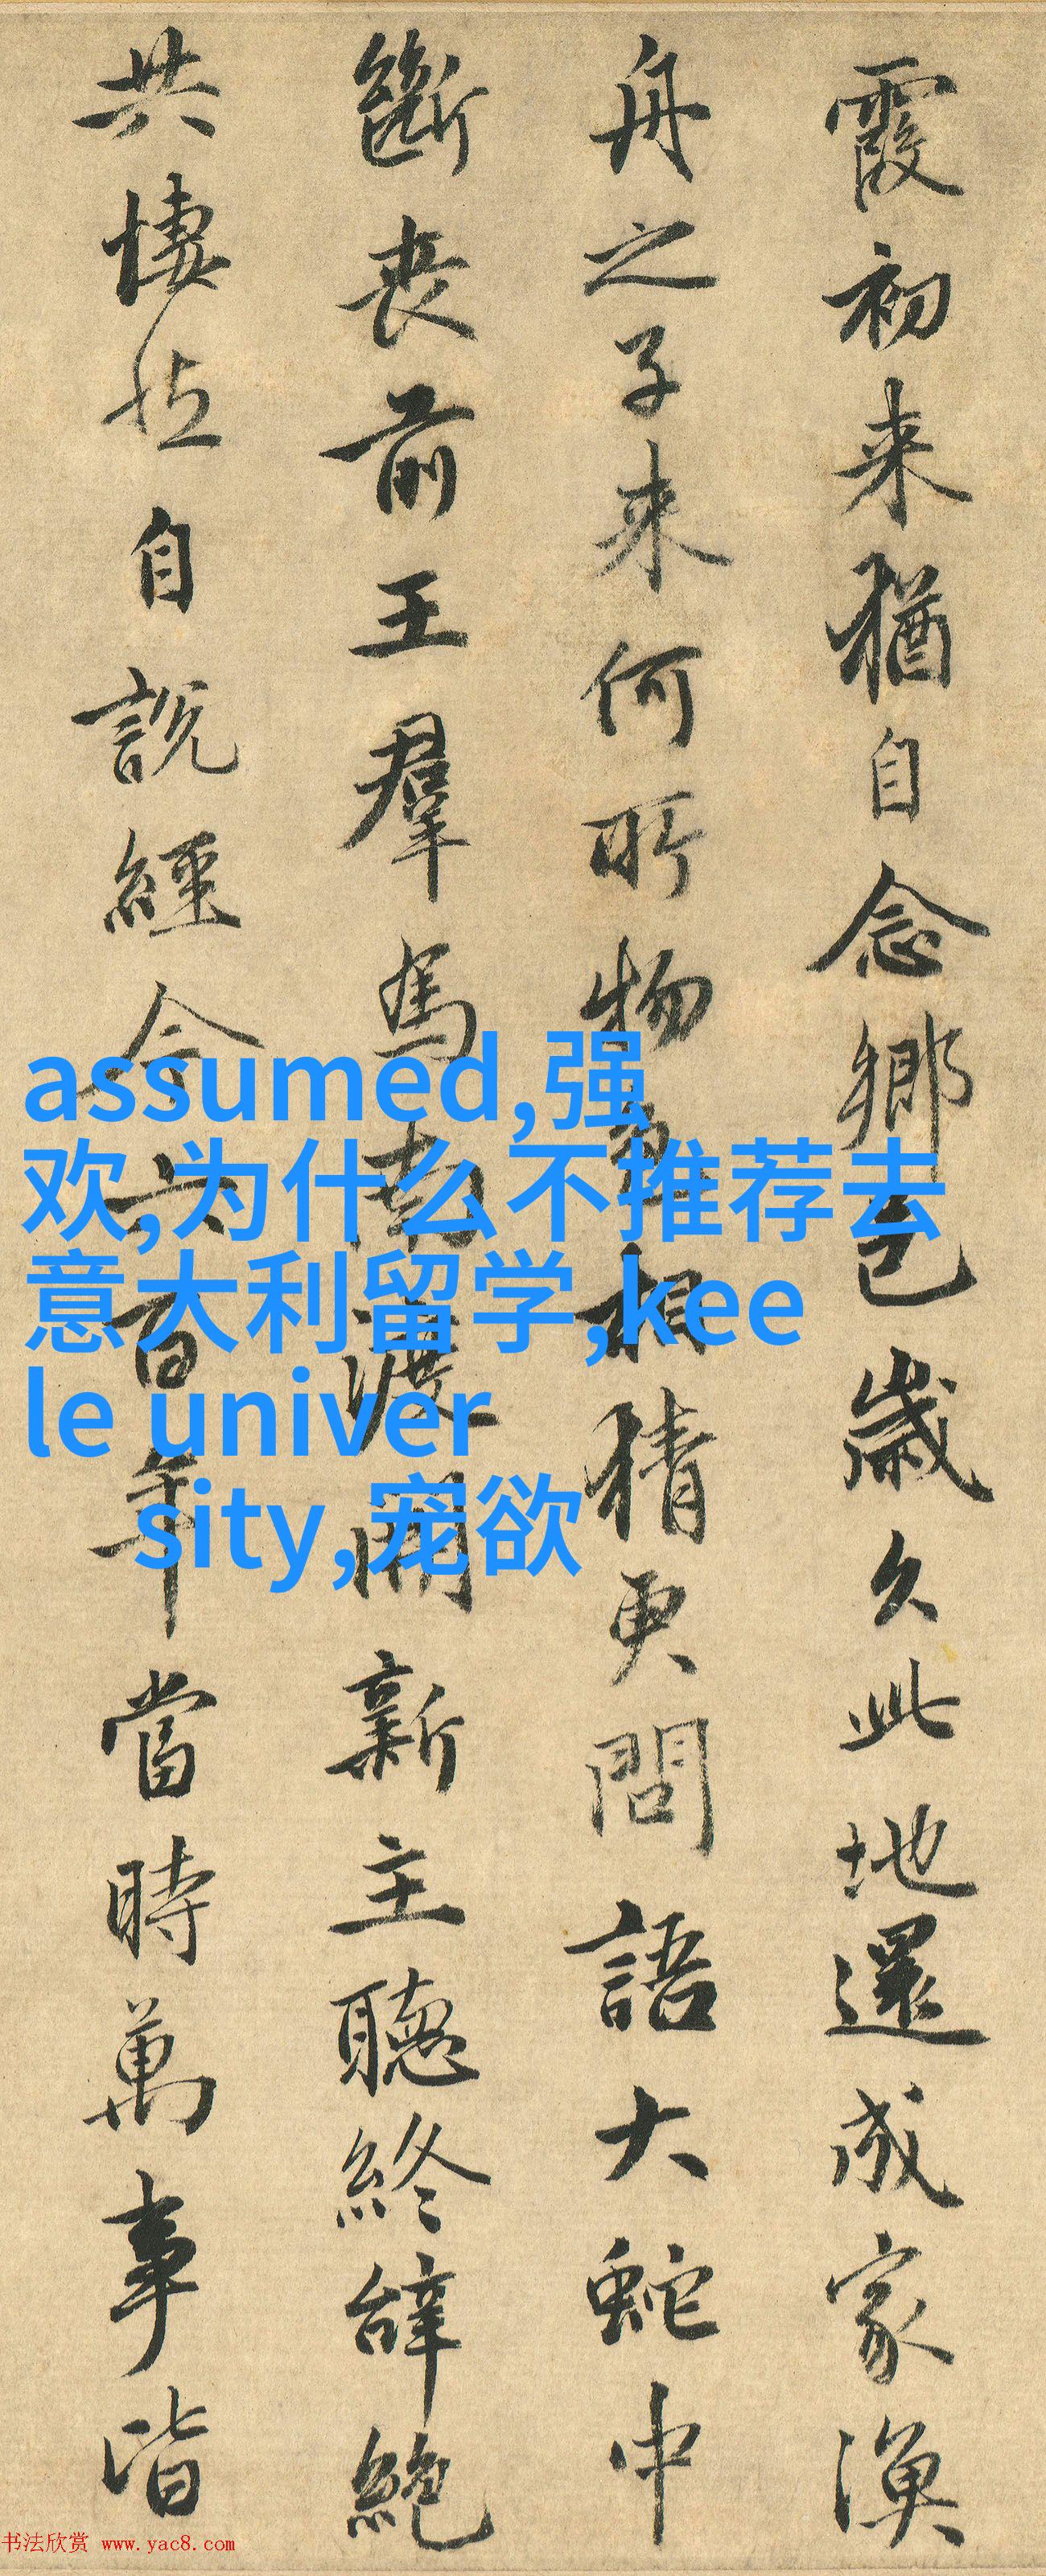 霞初来猶自念鄉邑歲久此地還成家漁
舟之子来何所物色相猜更問語大蛇中
斷喪前王羣馬南渡開新主聽終辭絶
共悽然自說經今六百年當時萬事皆
assumed,强
欢,为什么不推荐去
意大利留学,kee
le univer
sity,宠欲
书法欣赏 www.yac8.com